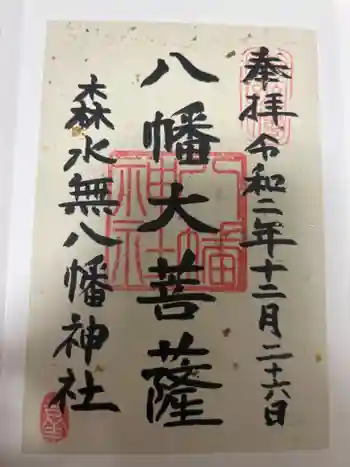 奉拝 令和二年十二月二十六日
八幡大菩薩
森水無八幡神社
八幡神社